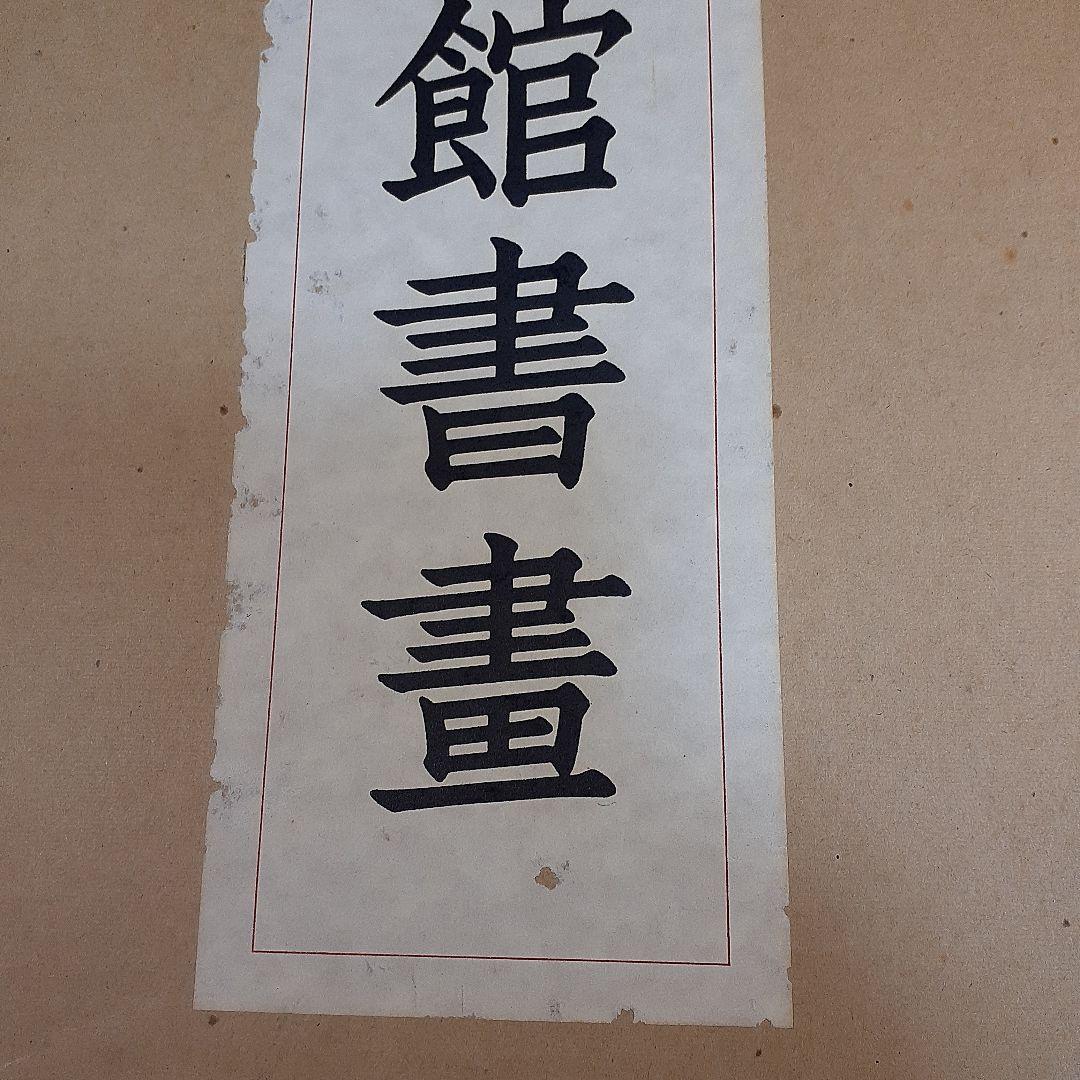 館書畫